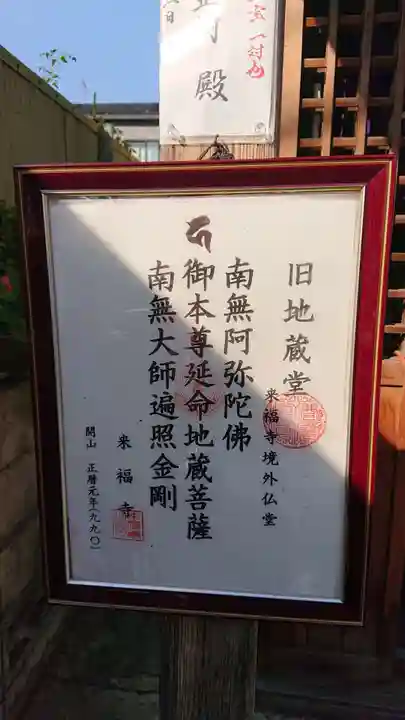 殿
一対
旧地蔵堂
来福寺境外仏堂
南無阿弥陀佛
御本尊延命地蔵菩薩
南無大師遍照金剛
来福寺
開山 正暦元年(九九〇)